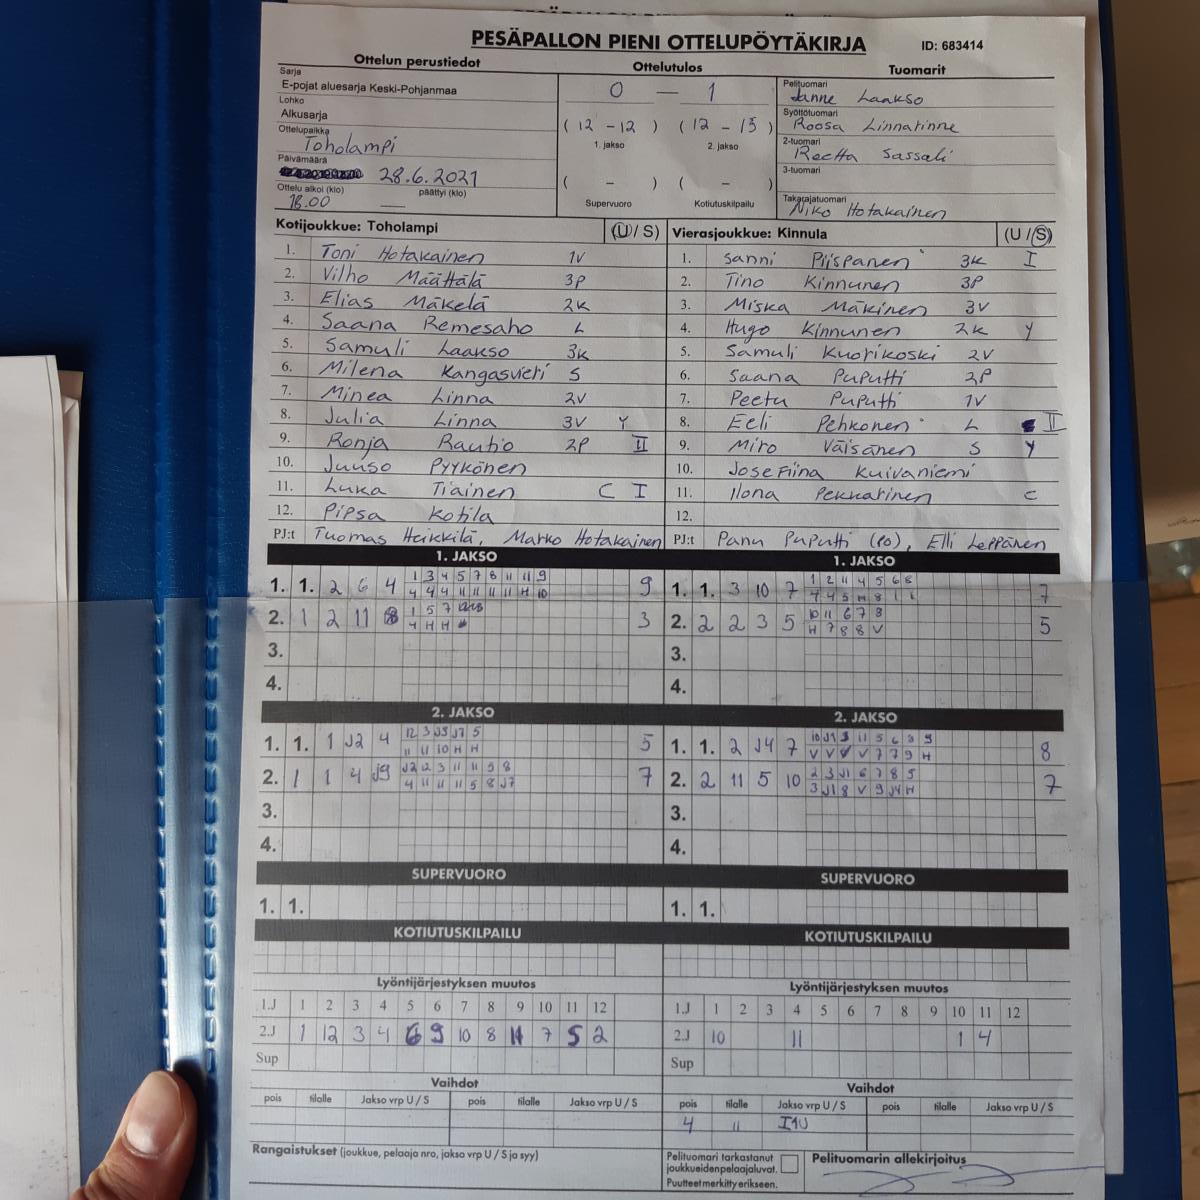 PESÄPALLON PIENI OTTELUPÖYTÄKIRJA ID: 683414
Ottelun perustiedot Ottelutulos Tuomarit
Sarja
E-pojat aluesarja Keski-Pohjanmaa
Lohko
Alkusarja
Ottelupaikka
Toholampi
Päivämäärä
28.6.2021
Ottelu alkoi (klo) päättyi (klo)
18.00
0 — 1
(12 - 12) (12 - 15)
1. jakso 2. jakso
( - ) ( - )
Supervuoro Kotiutuskilpailu
Pelituomari
Janne Laakso
Syöttötuomari
Roosa Linnarinne
2-tuomari
Reetta Sassali
3-tuomari
Takarajatuomari
Niko Hotakainen
Kotijoukkue: Toholampi (U / S)
1. Toni Hotakainen 1V
2. Vilho Määttälä 3P
3. Elias Mäkelä 2K
4. Saana Remesaho L
5. Samuli Laakso 3K
6. Milena Kangasvieri S
7. Minea Linna 2V
8. Julia Linna 3V Y
9. Ronja Rautio 2P II
10. Juuso Pyykönen
11. Luka Tiainen C I
12. Pipsa Kotila
PJ:t Tuomas Heikkilä, Marko Hotakainen
Vierasjoukkue: Kinnula (U / S)
1. Sanni Piispanen 3K I
2. Tino Kinnunen 3P
3. Miska Mäkinen 3V
4. Hugo Kinnunen 2K Y
5. Samuli Kuorikoski 2V
6. Saana Puputti 2P
7. Peetu Puputti 1V
8. Eeli Pehkonen L II
9. Miro Väisänen S Y
10. Josefiina Kuivaniemi
11. Ilona Pekkarinen C
12.
PJ:t Panu Puputti (PO), Elli Leppänen
1. JAKSO
1. 1. 2 6 4 1 3 4 5 7 8 11 11 9 9
4 4 4 11 11 11 11 H 10
2. 1 2 11 8 1 5 7 3
4 H H
3.
4.
1. JAKSO
1. 1. 3 10 7 1 2 11 4 5 6 8 7
4 4 5 H 8 1 1
2. 2 2 3 5 10 11 6 7 8 5
H 7 8 8 V
3.
4.
2. JAKSO
1. 1. 1 J2 4 12 3 J5 J7 5 5
11 11 10 H H
2. 1 1 4 J9 J2 2 3 11 11 5 8 7
4 11 11 11 5 8 J7
3.
4.
2. JAKSO
1. 1. 2 J4 7 10 J1 3 11 5 6 8 9 8
V V V V 7 7 9 H
2. 2 11 5 10 2 3 J1 6 7 8 5 7
3 J1 8 V 9 J4 H
3.
4.
SUPERVUORO SUPERVUORO
1. 1. 1. 1.
KOTIUTUSKILPAILU KOTIUTUSKILPAILU
Lyöntijärjestyksen muutos
1.J 1 2 3 4 5 6 7 8 9 10 11 12
2.J 1 12 3 4 6 9 10 8 11 7 5 2
Sup
Lyöntijärjestyksen muutos
1.J 1 2 3 4 5 6 7 8 9 10 11 12
2.J 10 11 1 4
Sup
Vaihdot Vaihdot
pois tilalle Jakso vrp U / S pois tilalle Jakso vrp U / S
pois tilalle Jakso vrp U / S pois tilalle Jakso vrp U / S
4 11 I1U
Rangaistukset (joukkue, pelaaja nro, jakso vrp U / S ja syy)
Pelituomari tarkastanut
joukkueiden pelaajaluvat.
Puutteet merkitty erikseen.
Pelituomarin allekirjoitus